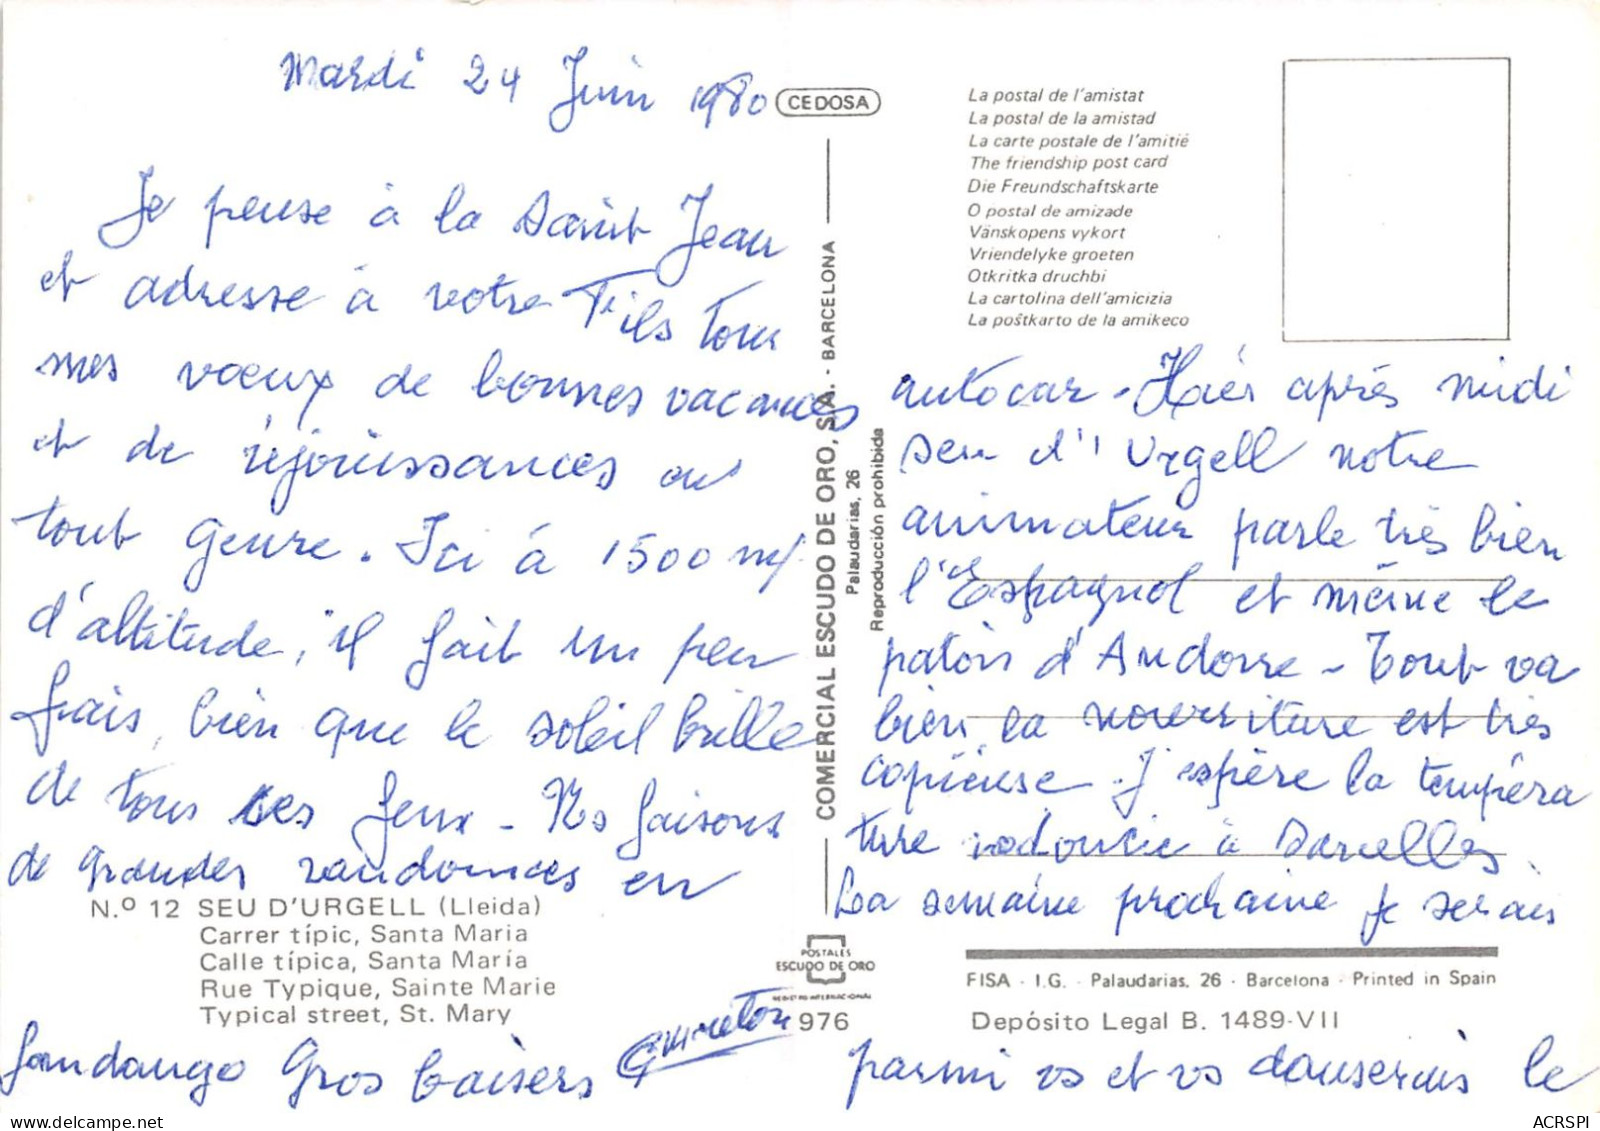 Mardi 24 Juin 1980
Je pense à la Saint Jean
et adresse à votre Fils tous
mes vœux de bonnes vacances
et de réjouissances en
tout genre. Ici à 1500 m
d'altitude, il fait un peu
frais, bien que le soleil brille
de tous ses feux - Ns faisons
de grandes randonnées en
N.º 12 SEU D'URGELL (Lleida)
Carrer típic, Santa Maria
Calle típica, Santa María
Rue Typique, Sainte Marie
Typical street, St. Mary
CEDOSA
COMERCIAL ESCUDO DE ORO, S.A. - BARCELONA
Palaudarias, 26
Reproducción prohibida
POSTALES
ESCUDO DE ORO
REGISTRO INTERNACIONAL
976
La postal de l'amistat
La postal de la amistad
La carte postale de l'amitié
The friendship post card
Die Freundschaftskarte
O postal de amizade
Vänskopens vykort
Vriendelyke groeten
Otkritka druchbi
La cartolina dell'amicizia
La poŝtkarto de la amikeco
autocar - Hier après midi
Seu d'Urgell notre
animateur parle très bien
l'Espagnol et même le
patois d'Andorre - Tout va
bien, la nourriture est très
copieuse. J'espère la tempéra
ture radoucie à Sarcelles.
La semaine prochaine je serais
FISA - I.G. - Palaudarias, 26 - Barcelona - Printed in Spain
Depósito Legal B. 1489-VII
parmi vs et vs danserais le
fandango Gros baisers
ACRSPI